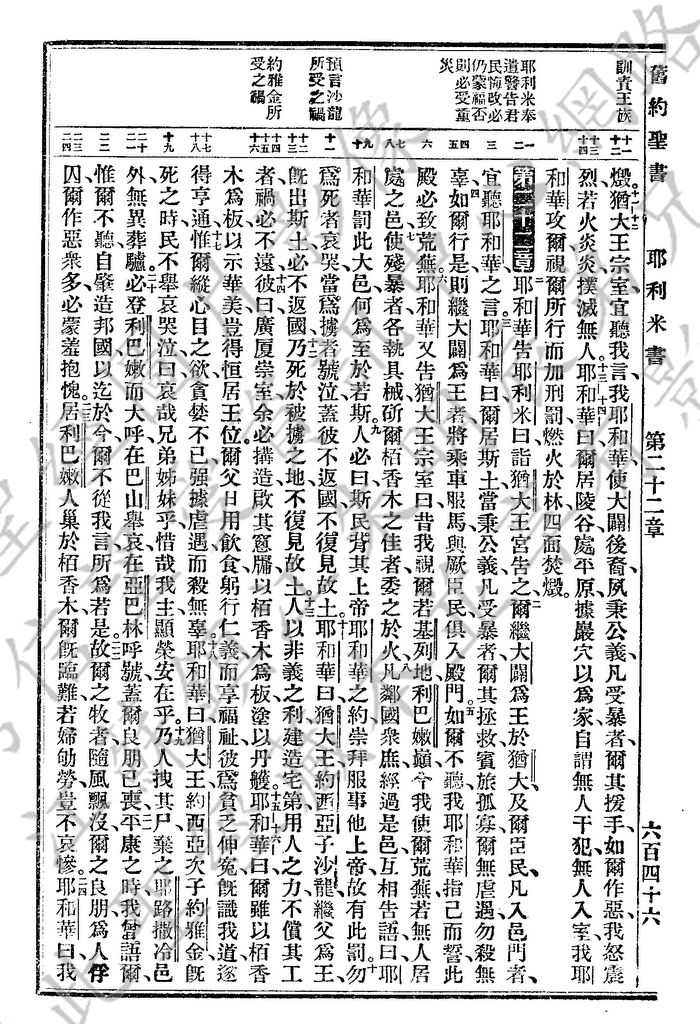 舊約聖書 耶利米書 第二十二章 六百四十六
訓責王族
耶利米奉
遣警告君
民悔改必
仍蒙福否
則必受重
災
預言沙龍
所受之禍
約雅金所
受之禍
燬、猶大王宗室、宜聽我言、我耶和華使大闢後裔、夙秉公義、凡受暴者、爾其援手、如爾作惡、我怒震
烈、若火炎炎、撲滅無人、耶和華曰、爾居陵谷、處平原、據巖穴以爲家、自謂無人干犯、無人入室、我耶
和華攻爾、視爾所行而加刑罰、燃火於林、四面焚燬。
第二十二章 耶和華告耶利米曰、詣猶大王宮告之、爾繼大闢爲王於猶大、及爾臣民、凡入邑門者、
宜聽耶和華之言、耶和華曰、爾居斯土、當秉公義、凡受暴者、爾其拯救、賓旅孤寡、爾無虐遇、勿殺無
辜、如爾行是、則繼大闢爲王者、將乘車服馬、與厥臣民、俱入殿門、如爾不聽、我耶和華指己而誓、此
殿必致荒蕪、耶和華又告猶大王宗室曰、昔我視爾若基列地利巴嫩巓、今我使爾荒蕪、若無人居
處之邑、使殘暴者、各執其械、斫爾栢香木之佳者、委之於火、凡鄰國衆庶、經過是邑、互相告語曰、耶
和華罰此大邑、何爲至於若斯、人必曰、斯民背其上帝耶和華之約、崇拜服事他上帝、故有此罰、勿
爲死者哀哭、當爲擄者號泣、蓋彼不返國、不復見故土、耶和華曰、猶大王約西亞子沙龍、繼父爲王、
旣出斯土、必不返國、乃死於被擄之地、不復見故土、人以非義之利、建造宅第、用人之力、不償其工
者、禍必不遠、彼曰、廣厦崇室、余必搆造、啟其窻牖、以栢香木爲板、塗以丹雘、耶和華曰、爾雖以栢香
木爲板、以示華美、豈得恒居王位、爾父日用飲食、躬行仁義、而享福祉、彼爲貧乏伸寃、旣識我道、遂
得亨通、惟爾縱心目之欲、貪婪不已、强據虐遇、而殺無辜、耶和華曰、猶大王約西亞次子約雅金、旣
死之時、民不舉哀、哭泣曰、哀哉兄弟姊妹乎、惜哉我主、顯榮安在乎、乃人拽其尸、棄之耶路撒冷邑
外、無異葬驢、必登利巴嫩而大呼、在巴山舉哀、在亞巴林呼號、蓋爾良朋已喪、平康之時、我曾語爾、
惟爾不聽、自肇造邦國、以迄於今、爾不從我言、所爲若是、故爾之牧者、隨風飄沒、爾之良朋、爲人俘
囚、爾作惡衆多、必蒙羞抱愧、居利巴嫩人、巢於栢香木、爾旣臨難、若婦劬勞、豈不哀慘、耶和華曰、我